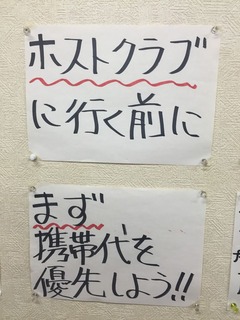 ホストクラブ
に行く前に
まず、
携帯代を
優先しよう!!